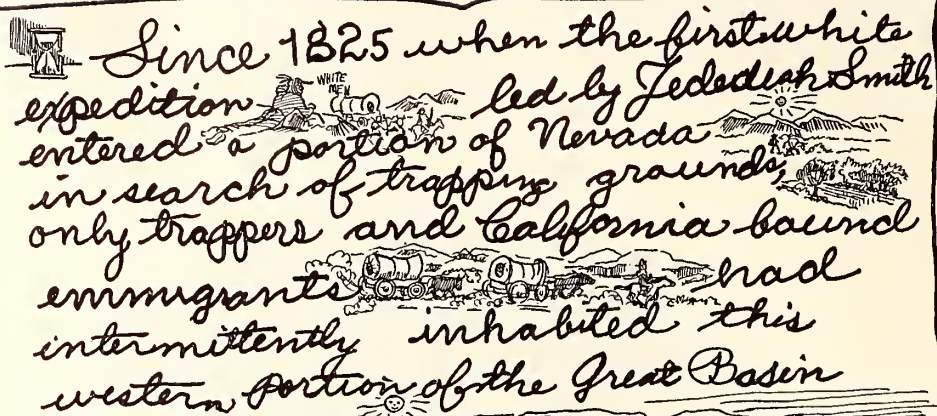 Since 1825 when the first white
expedition WHITE MEN led by Jedediah Smith
entered a portion of Nevada
in search of trapping grounds,
only trappers and California bound
emmigrants had
intermittently inhabited this
western portion of the Great Basin